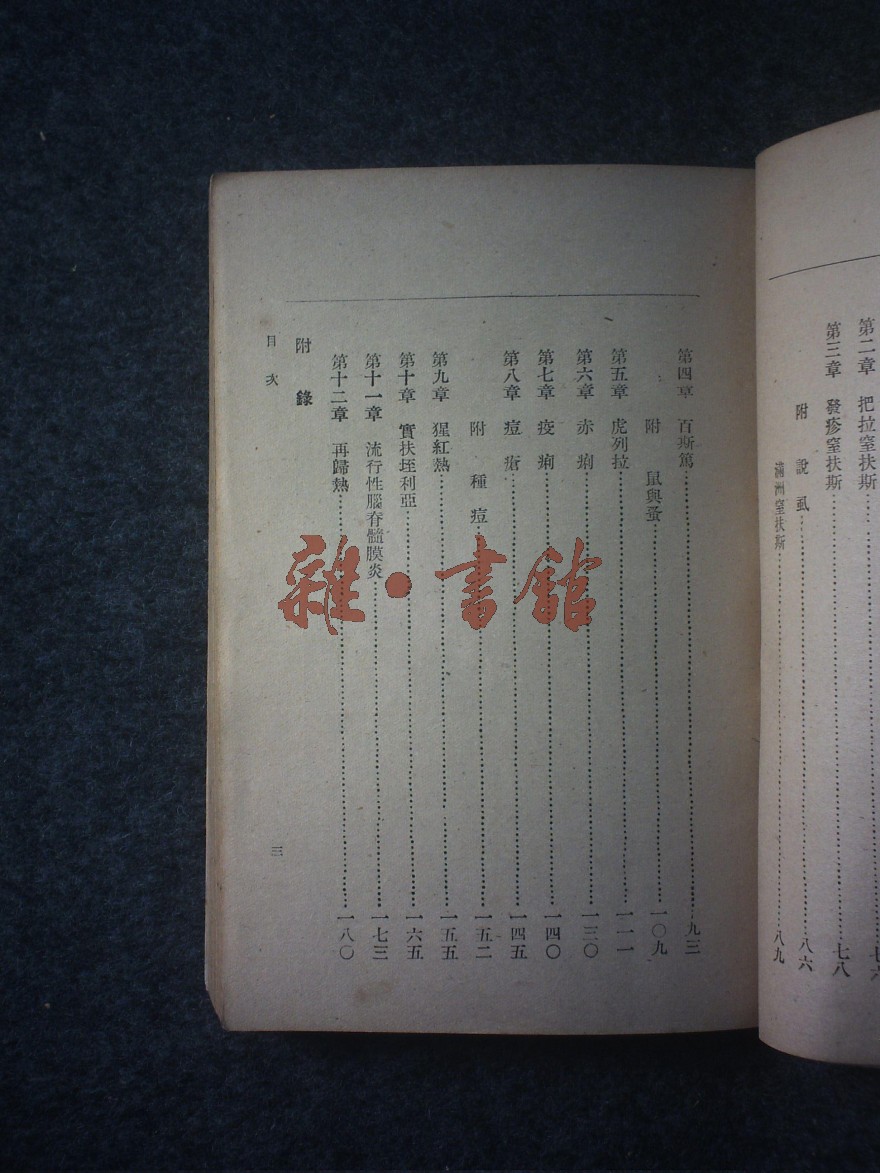 第二章　把拉窒扶斯……七六
第三章　發疹窒扶斯……七八
附　說虱……八六
滿洲窒扶斯……八九
第四章　百斯篤……九三
附　鼠與蚤……一〇九
第五章　虎列拉……一一一
第六章　赤痢……一三〇
第七章　疫痢……一四〇
第八章　痘瘡……一四五
附　種痘……一五二
第九章　猩紅熱……一五五
第十章　實扶垤利亞……一六五
第十一章　流行性腦脊髓膜炎……一七三
第十二章　再歸熱……一八〇
附錄
目次
三
雜·書館